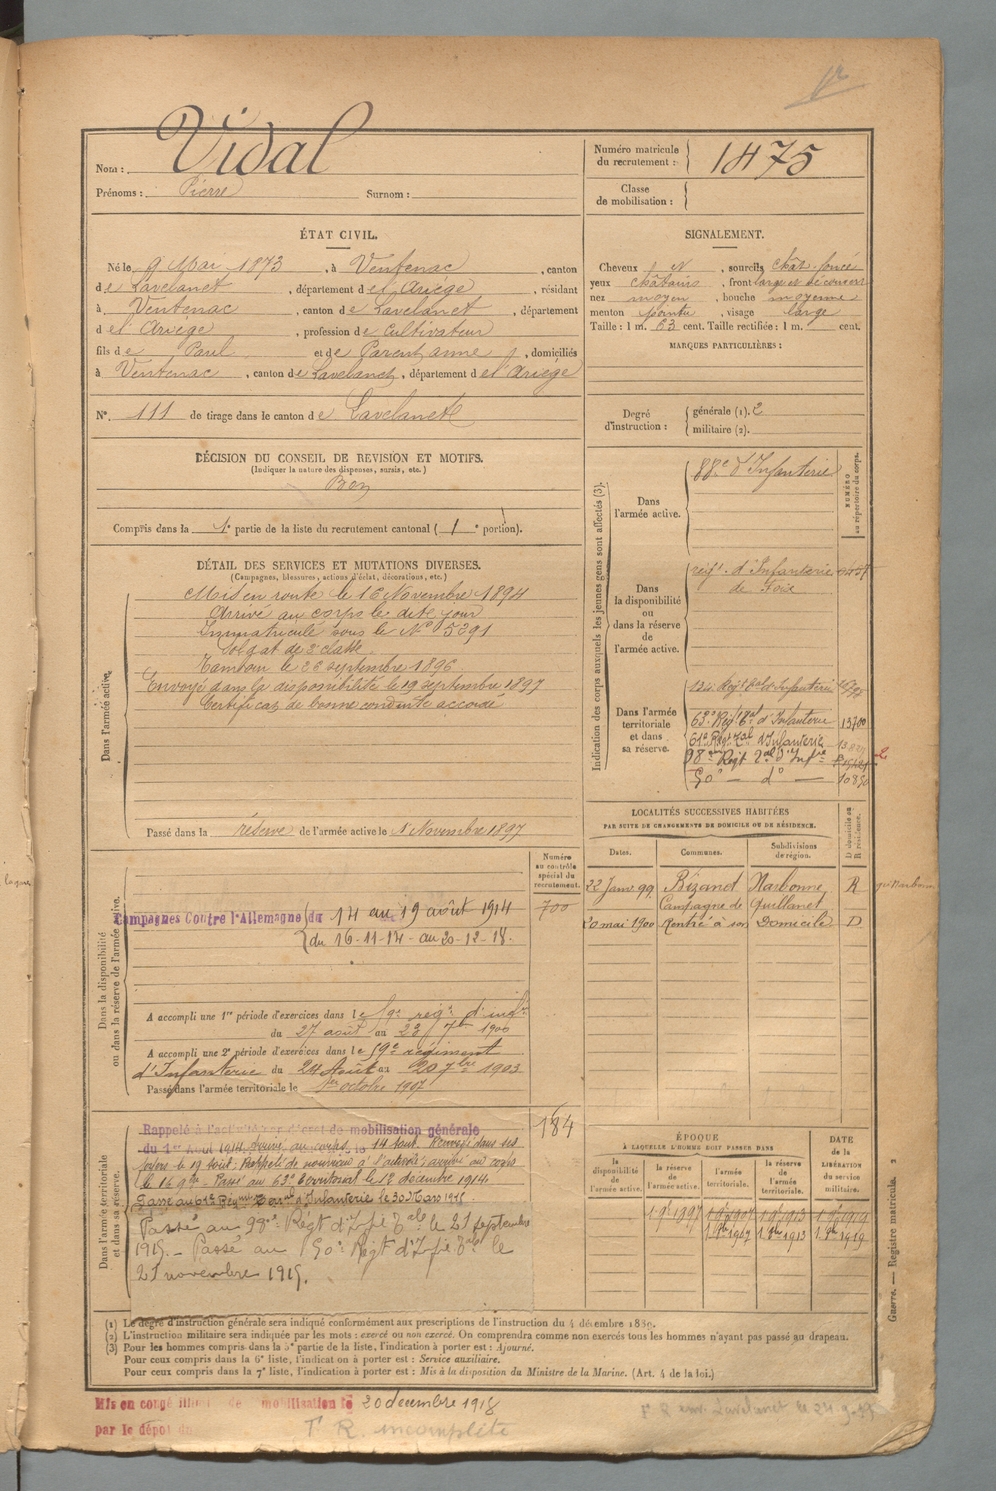 Nom : Vidal
Prénoms : Pierre Surnom :
Numéro matricule du recrutement : 1475
Classe de mobilisation :
ÉTAT CIVIL.
Né le 9 Mai 1873, à Ventenac, canton
de Lavelanet, département de l'Ariège, résidant
à Ventenac, canton de Lavelanet, département
de l'Ariège, profession de Cultivateur
fils de Paul et de Parent Anne, domiciliés
à Ventenac, canton de Lavelanet, département de l'Ariège
N° 111 de tirage dans le canton de Lavelanet
SIGNALEMENT.
Cheveux N, sourcils chât. foncé
yeux châtains, front large et découvert
nez moyen, bouche moyenne
menton pointu, visage large
Taille : 1 m. 63 cent. Taille rectifiée : 1 m. cent.
MARQUES PARTICULIÈRES :
Degré d'instruction :
générale (1). 2
militaire (2).
DÉCISION DU CONSEIL DE REVISION ET MOTIFS.
(Indiquer la nature des dispenses, sursis, etc.)
Bon
Compris dans la 1e partie de la liste du recrutement cantonal ( 1e portion).
DÉTAIL DES SERVICES ET MUTATIONS DIVERSES.
(Campagnes, blessures, actions d'éclat, décorations, etc.)
Dans l'armée active.
Mis en route le 16 Novembre 1894
Arrivé au corps le dit jour
Immatriculé sous le N° 5291
Soldat de 2e classe
Tambour le 26 septembre 1896
Envoyé dans la disponibilité le 19 septembre 1897
Certificat de bonne conduite accordé
Passé dans la réserve de l'armée active le 1er Novembre 1897
Indication des corps auxquels les jeunes gens sont affectés (3).
NUMÉRO au répertoire du corps.
Dans l'armée active.
88e d'Infanterie
Dans la disponibilité ou dans la réserve de l'armée active.
régt. d'Infanterie
de Foix
Dans l'armée territoriale et dans sa réserve.
Régt d'Infanterie
63e Régt d'Infanterie 13700
61e Régt d'Infanterie
98e Régt d'Infie
50e — do —
LOCALITÉS SUCCESSIVES HABITÉES
PAR SUITE DE CHANGEMENTS DE DOMICILE OU DE RÉSIDENCE.
Dates. Communes. Subdivisions de région. D domicile ou R résidence.
22 Janv 99 Bizanet Narbonne R
Campagne de Quillanet
20 mai 1900 Rentré à son Domicile D
Numéro au contrôle spécial du recrutement.
700
Dans la disponibilité ou dans la réserve de l'armée active.
Campagnes Contre l'Allemagne du 14 au 19 août 1914
du 16-11-14 au 20-12-18.
A accompli une 1re période d'exercices dans le 59e rég. d'inf.
du 27 août au 23 7bre 1900
A accompli une 2e période d'exercices dans le 59e régiment
d'Infanterie du 24 Août au 20 7bre 1903
Passé dans l'armée territoriale le 1er octobre 1907
184
Dans l'armée territoriale et dans sa réserve.
Rappelé à l'activité par décret de mobilisation générale
du 1er Août 1914, arrivé au corps le 14 Aout. Renvoyé dans ses
foyers le 19 Aout. Rappelé de nouveau à l'activité; arrivé au corps
le 16 9bre. Passé au 63e Territorial le 12 décembre 1914
Passé au 61e Régiment Terral d'Infanterie le 30 Mars 1915.
Passé au 98e Régt d'Infie Tale le 21 septembre
1915. — Passé au 50e Régt d'Infie Tale le
21 novembre 1915.
ÉPOQUE
À LAQUELLE L'HOMME DOIT PASSER DANS
la disponibilité de l'armée active. la réserve de l'armée active. l'armée territoriale. la réserve de l'armée territoriale.
DATE DE LA LIBÉRATION du service militaire.
1 9bre 1897 1 9bre 1907 1 9bre 1913 1 9bre 1919
1 8bre 1907 1 8bre 1913 1 8bre 1919
Guerre. — Registre matricule.
(1) Le degré d'instruction générale sera indiqué conformément aux prescriptions de l'instruction du 4 décembre 1889.
(2) L'instruction militaire sera indiquée par les mots : exercé ou non exercé. On comprendra comme non exercés tous les hommes n'ayant pas passé au drapeau.
(3) Pour les hommes compris dans la 5e partie de la liste, l'indication à porter est : Ajourné.
Pour ceux compris dans la 6e liste, l'indication à porter est : Service auxiliaire.
Pour ceux compris dans la 7e liste, l'indication à porter est : Mis à la disposition du Ministre de la Marine. (Art. 4 de la loi.)
Mis en congé de mobilisation le 20 décembre 1918
par le dépot du
R. incomplète
Lavelanet le